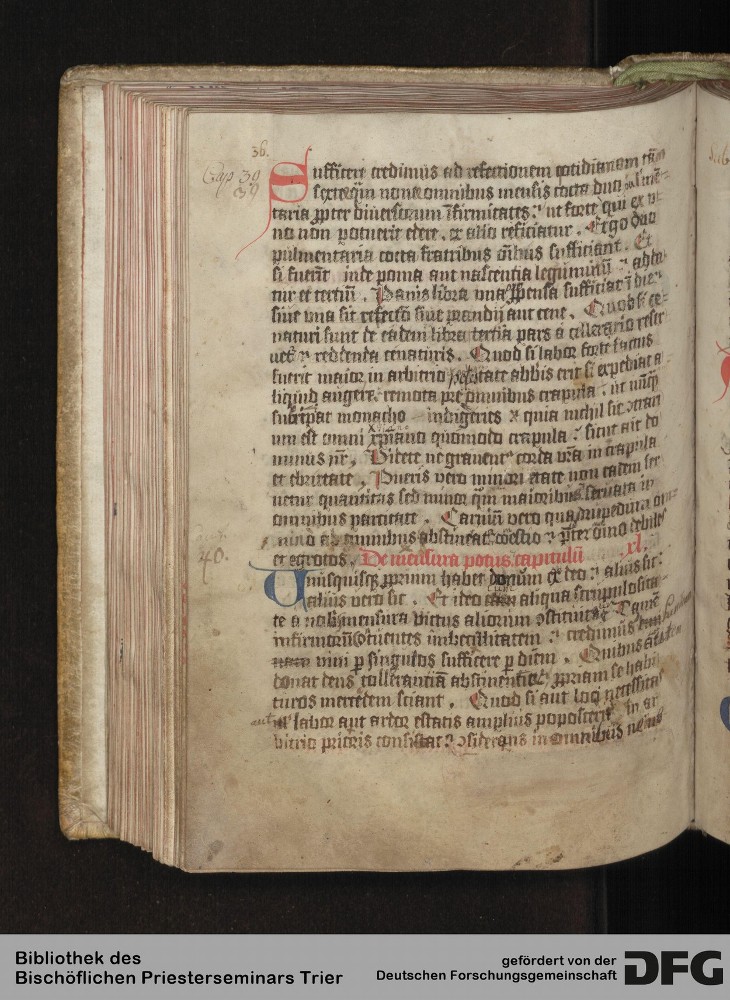 36.
Cap 39
39
Sufficere credimus ad refectionem cotidianam tam
sexte qm none omnibus mensis cocta duo pulmen¬
taria ꝓpter diuersorum īfirmitates: ut forte qui ex u¬
no non potuerit edere. ex alio reficiatur. Ergo duo
pulmentaria cocta fratribus oībus sufficiant. Et
si fuerīt inde poma aut nascentia leguminū adda¬
tur et tertiū. Panis libra vna ꝓpensa sufficiat ī die:
siue vna sit refectō siue prandij aut cene. Quod si ce¬
naturi sunt de eadem libra tertia pars a cellerario reser
uet' reddenda cenaturis. Quod si labor forte factus
fuerit maior in arbitrio potestate abbis erit si expediat a
liquid augere. remota pre omnibus crapula. ut nūqꝫ
subripiat monacho indigeries ⁊ quia nichil sic ↄtrari
um est omni xpiano quomodo crapula: sicut ait do
minus nr̄. Videte ne grauent' corda vr̄a in crapula
et ebrietate. Pueris vero minori etate non eadem ser
uetur quantitas sed minor qm maioribus seruata in
omnibus parcitate. Carniū vero quadrupedum om¬
nino ab omnibus abstineat' comestio ⁊ p̄ter omīno debiles
et egrotos. De mensura potus. capitulū xl.
40.
Unusquisqꝫ ꝓprium habet donum ex deo: alius sic:
alius vero sic. Et ideo cum aliqua scrupulosita¬
te a nobis mensura victus aliorum ↄstituit' Tamē
infirmorū ↄtuentes imbecillitatem: credimus
vini p singulos sufficere p diem. Quibus aūt
donat deus tollerantiā abstinentie ꝓpriam se habi
turos mercedem sciant. Quod si aut loci necessitas
aut labor aut ardor estatis amplius poposcerit in ar
bitrio prioris consistat: ↄsiderans in omnibus ne
Bibliothek des
Bischöflichen Priesterseminars Trier
gefördert von der
Deutschen Forschungsgemeinschaft
DFG